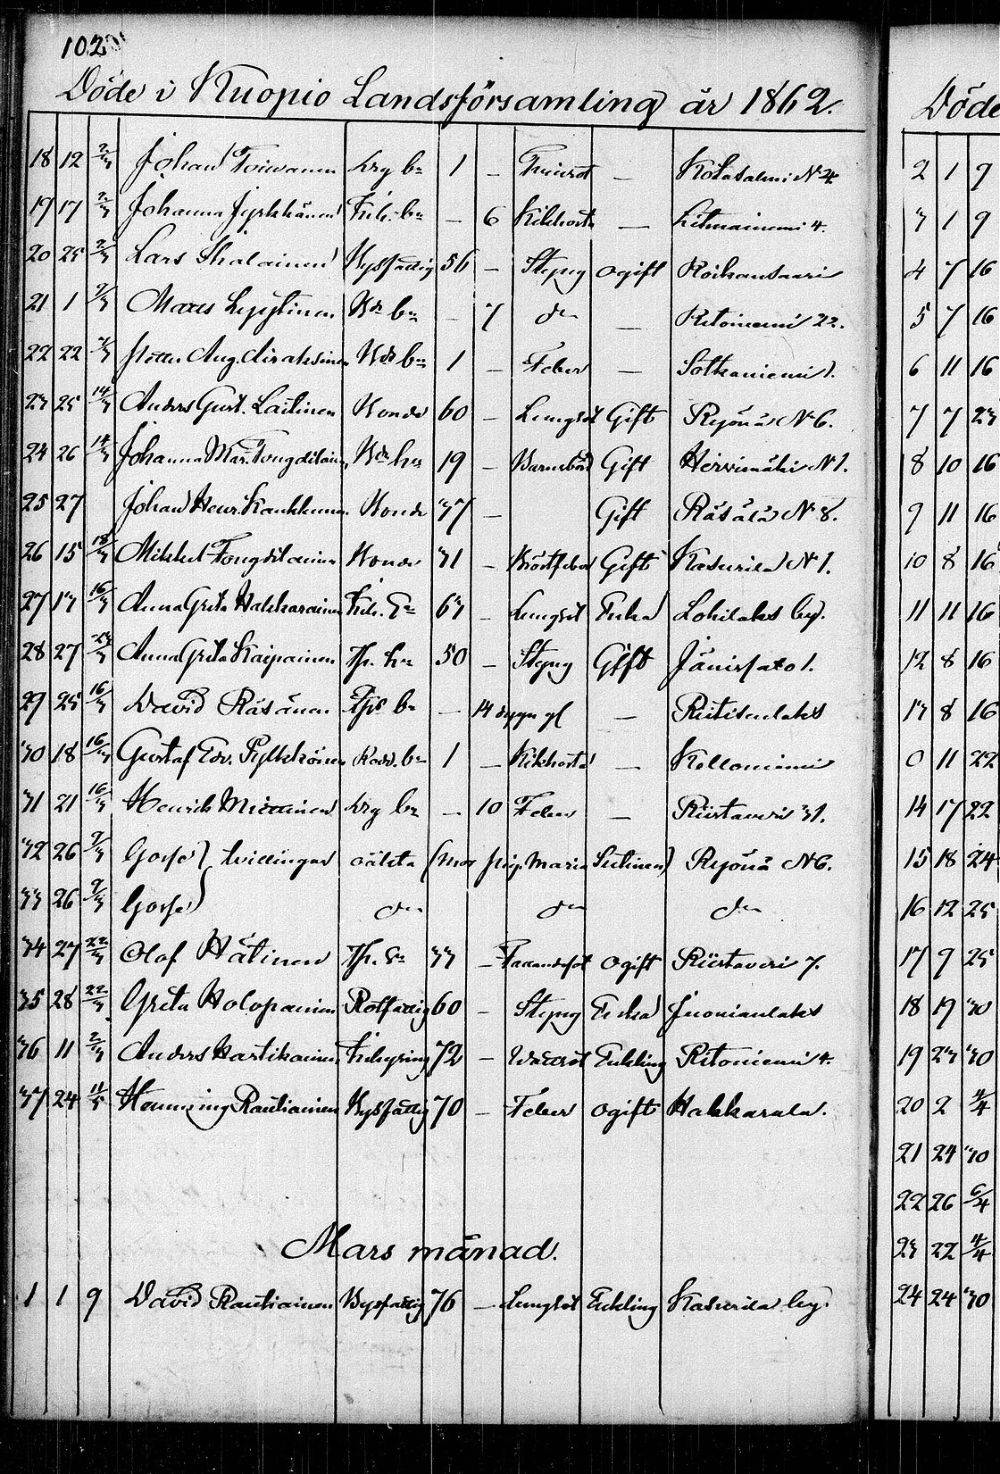 102
Döde i Kuopio Landsförsamling år 1862.
18 12 2/3 Johan Toivanen Drg bn 1 – – Kotasalmi N 4.
19 17 2/3 Johanna Jyrkkänen Inh. bn – 6 Kikhosta – 4.
20 25 2/3 Lars Ihalainen Hysfattig 56 – Styng ogift Roikansaari
21 1 2/3 Mares Lyytinen Bde bn – 7 dn – Ritoniemi 22.
22 22 Petter Aug. Airaksinen Bde bn 1 – Feber – Sotkaniemi 1.
23 25 14/3 Anders Gust. Laitinen Bonde 60 – Lungsot Gift Ryönä N 6.
24 26 14/3 Johanna Mar. Tengvilainen Bde hu 19 – Barnsbörd Gift Hirvimäki N 1.
25 27 Johan Henr. Kankkunen Bonde 37 – Gift Räsälä N 8.
26 15 Mikkel Tengvilainen Bonde 31 – Bröstfeber Gift Kasurila N 1.
27 13 16/3 Anna Greta Hakkarainen Inh. En 63 – Lungsot Enka Lohilaks by.
28 27 23/3 Anna Greta Kaipainen Th. hu 50 – Styng Gift Jänissalo 1.
29 25 16/3 David Räsänen bn – 14 dygn gl – Riitisenlaks
30 18 16/3 Gustaf Edv. Pylkkönen bn 1 – Kikhosta – Kelloniemi
31 21 16/3 Henrik Miettinen Drg bn – 10 Feber – Riistaveri 31.
32 26 9/3 Gosse } tvillingar oäkta (mor pig. Maria Sutinen) Ryönä N 6.
33 26 9/3 Gosse } dn dn dn
34 27 22/3 Olof Hätinen Th. 33 – ogift Riistaveri 7.
35 28 22/3 Greta Holopainen Rotfattig 60 – Styng Enka Juonionlaks
36 11 2/3 Anders Kartikainen Inhysing 72 – Enkling Ritoniemi 4.
37 24 11/5 Henning Rautiainen Hysfattig 70 – Feber ogift Hakkarala.
Mars månad.
1 1 9 David Rautiainen Bysfattig 76 – Lungsot Enkling Kasurila by.
Döde
2 1 9
3 1 9
4 7 16
5 7 16
6 11 16
7 7 23
8 10 16
9 11 16
10 8 16
11 11 16
12 8 16
13 8 16
0 11 22
14 17 22
15 18 24
16 12 25
17 9 25
18 19 30
19 23 30
20 2 4/4
21 24 30
22 26 6/4
23 22 4/4
24 24 30